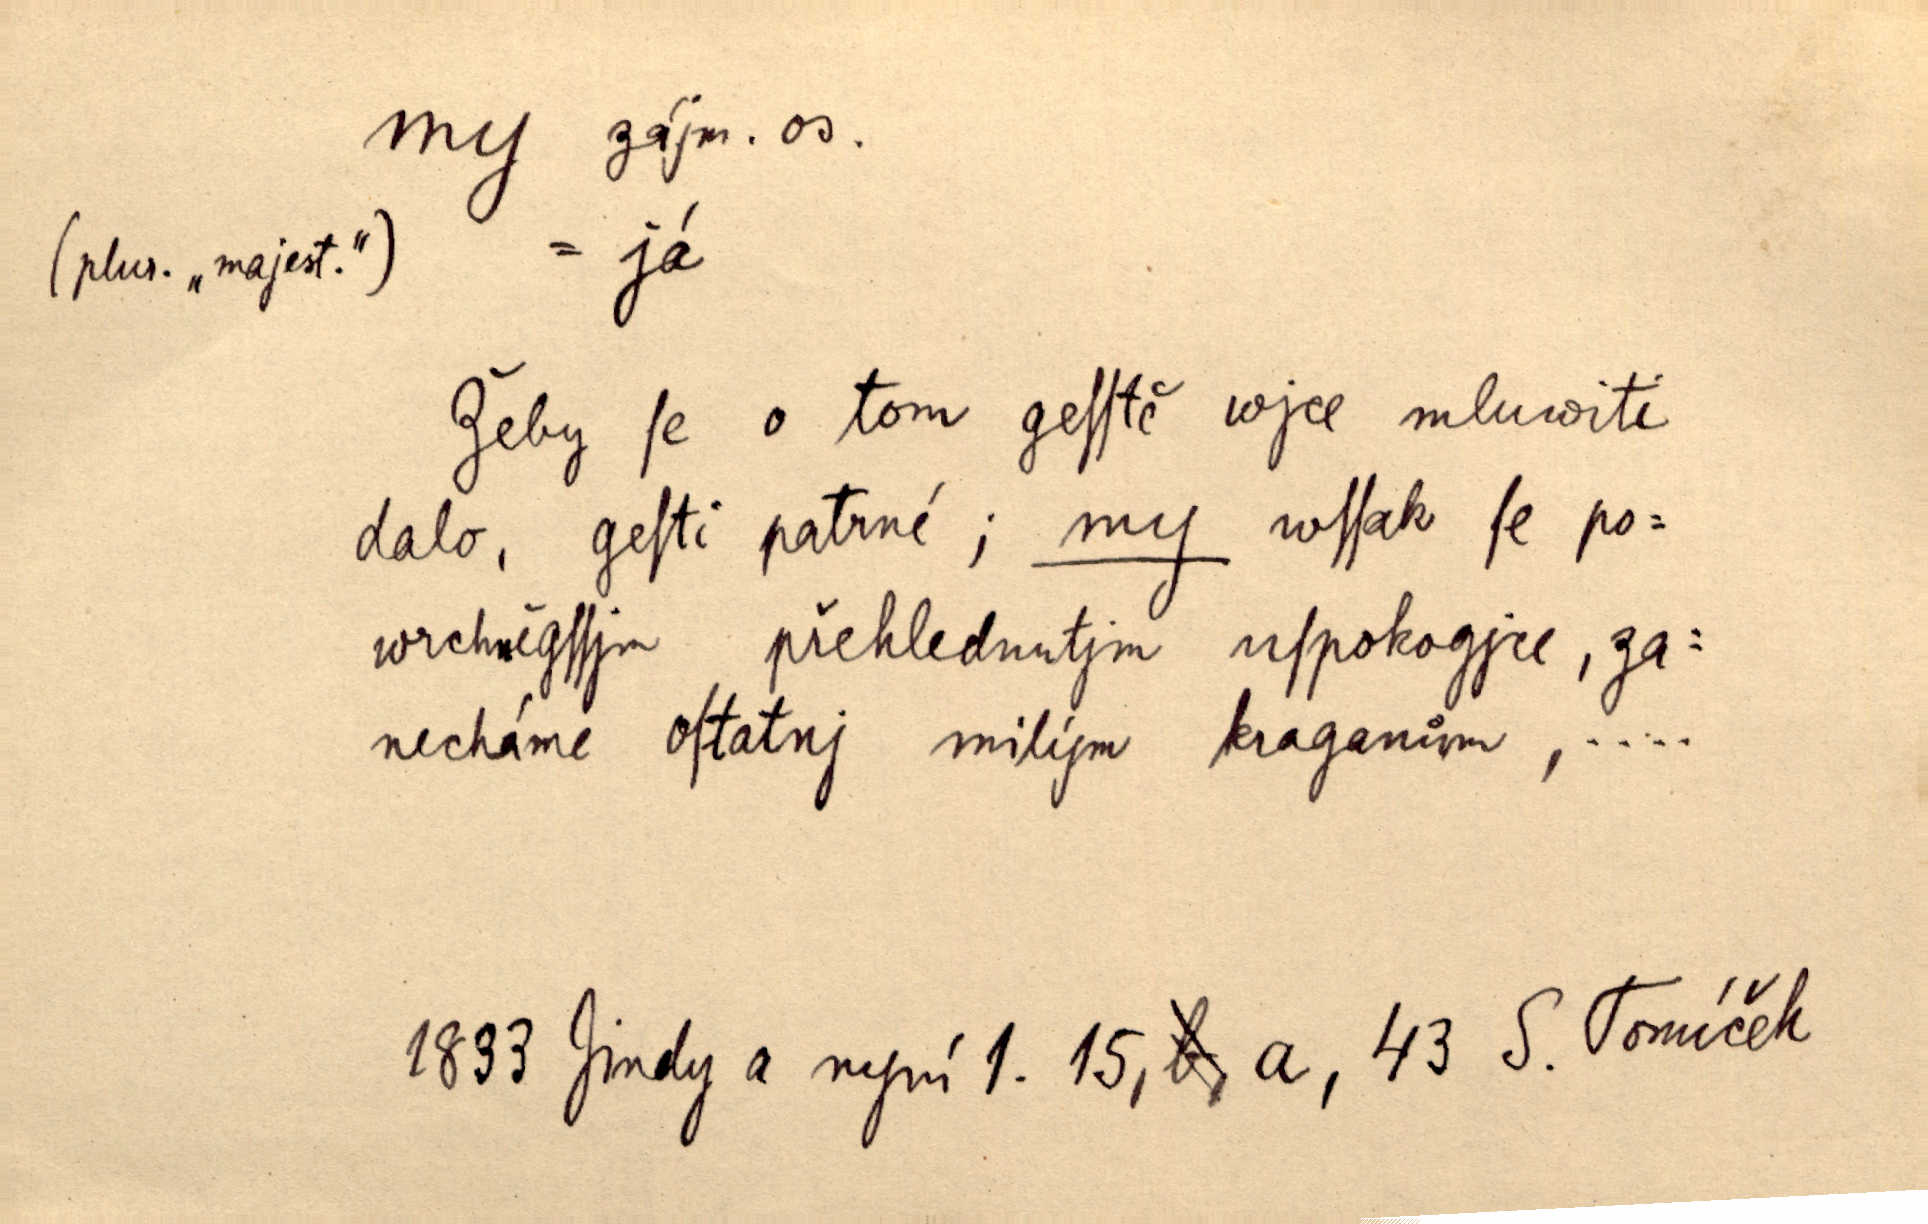 my zájm. os.
(plur. „majest.“) = já
Žeby ſe o tom geſſtě wjce mluwiti
dalo, geſti patrné ; my wſſak ſe po=
wrchněgſſjm přehlednutjm uſpokogjce, za=
necháme oſtatnj milým kraganům, .....
1833 Jindy a nyní 1. 15, b, a, 43 S. Tomíček